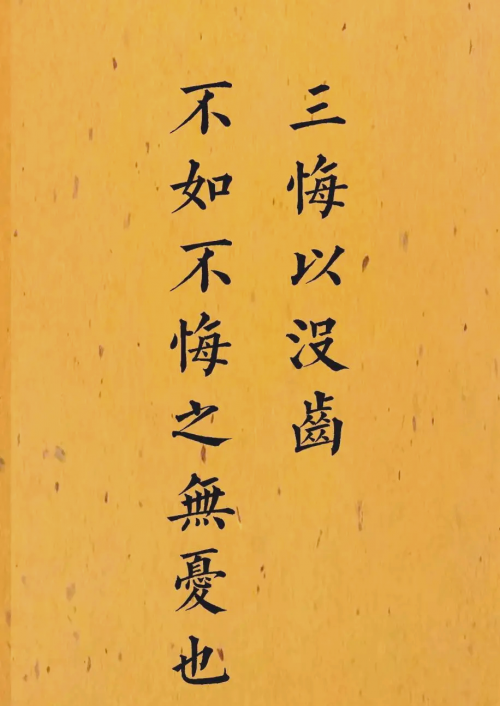 三悔以没齒
不如不悔之無憂也